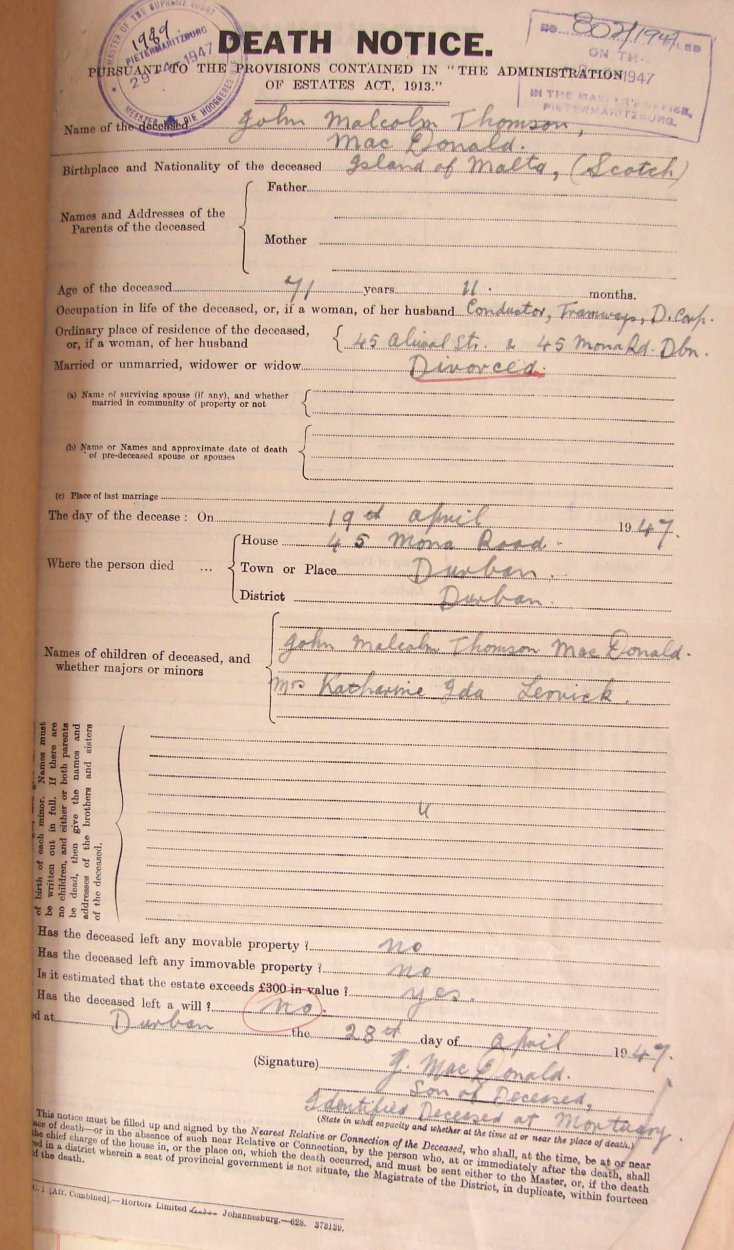 MASTER OF THE SUPREME COURT
1989
PIETERMARITZBURG
29 APR 1947
MEESTER VAN DIE HOOGGEREGSHOF
No 802/1947
ON TH
1947
IN THE MASTER'S OFFICE,
PIETERMARITZBURG.
DEATH NOTICE.
PURSUANT TO THE PROVISIONS CONTAINED IN "THE ADMINISTRATION
OF ESTATES ACT, 1913."
Name of the deceased John Malcolm Thomson,
Mac Donald.
Birthplace and Nationality of the deceased Island of Malta, (Scotch)
Names and Addresses of the Parents of the deceased
Father
Mother
Age of the deceased 71 years 11. months.
Occupation in life of the deceased, or, if a woman, of her husband Conductor, Tramways, D. Corp.
Ordinary place of residence of the deceased,
or, if a woman, of her husband 45 Aliwal Str. & 45 Mona Rd. Dbn.
Married or unmarried, widower or widow Divorced.
(a) Name of surviving spouse (if any), and whether
married in community of property or not
(b) Name or Names and approximate date of death
of pre-deceased spouse or spouses
(c) Place of last marriage
The day of the decease: On 19th April 1947.
Where the person died ...
House 45 Mona Road.
Town or Place Durban.
District Durban.
Names of children of deceased, and
whether majors or minors
John Malcolm Thomson Mac Donald.
Mrs Katharine Ida
of birth of each minor. Names must
be written out in full. If there are
no children, and either or both parents
be dead, then give the names and
addresses of the brothers and sisters
of the deceased.
Has the deceased left any movable property? no
Has the deceased left any immovable property? no
Is it estimated that the estate exceeds £300 in value? yes.
Has the deceased left a will? no.
ed at Durban the 28th day of April 1947.
(Signature) J. Mac Donald.
Son of Deceased,
Identified Deceased at Mortuary.
(State in what capacity and whether at the time at or near the place of death.)
This notice must be filled up and signed by the Nearest Relative or Connection of the Deceased, who shall, at the time, be at or near
ace of death—or in the absence of such near Relative or Connection, by the person who, at or immediately after the death, shall
the chief charge of the house in, or the place on, which the death occurred, and must be sent either to the Master, or, if the death
red in a district wherein a seat of provincial government is not situate, the Magistrate of the District, in duplicate, within fourteen
of the death.
C. 1 [Afr. Combined].—Hortors Limited Johannesburg.—628. 373139.